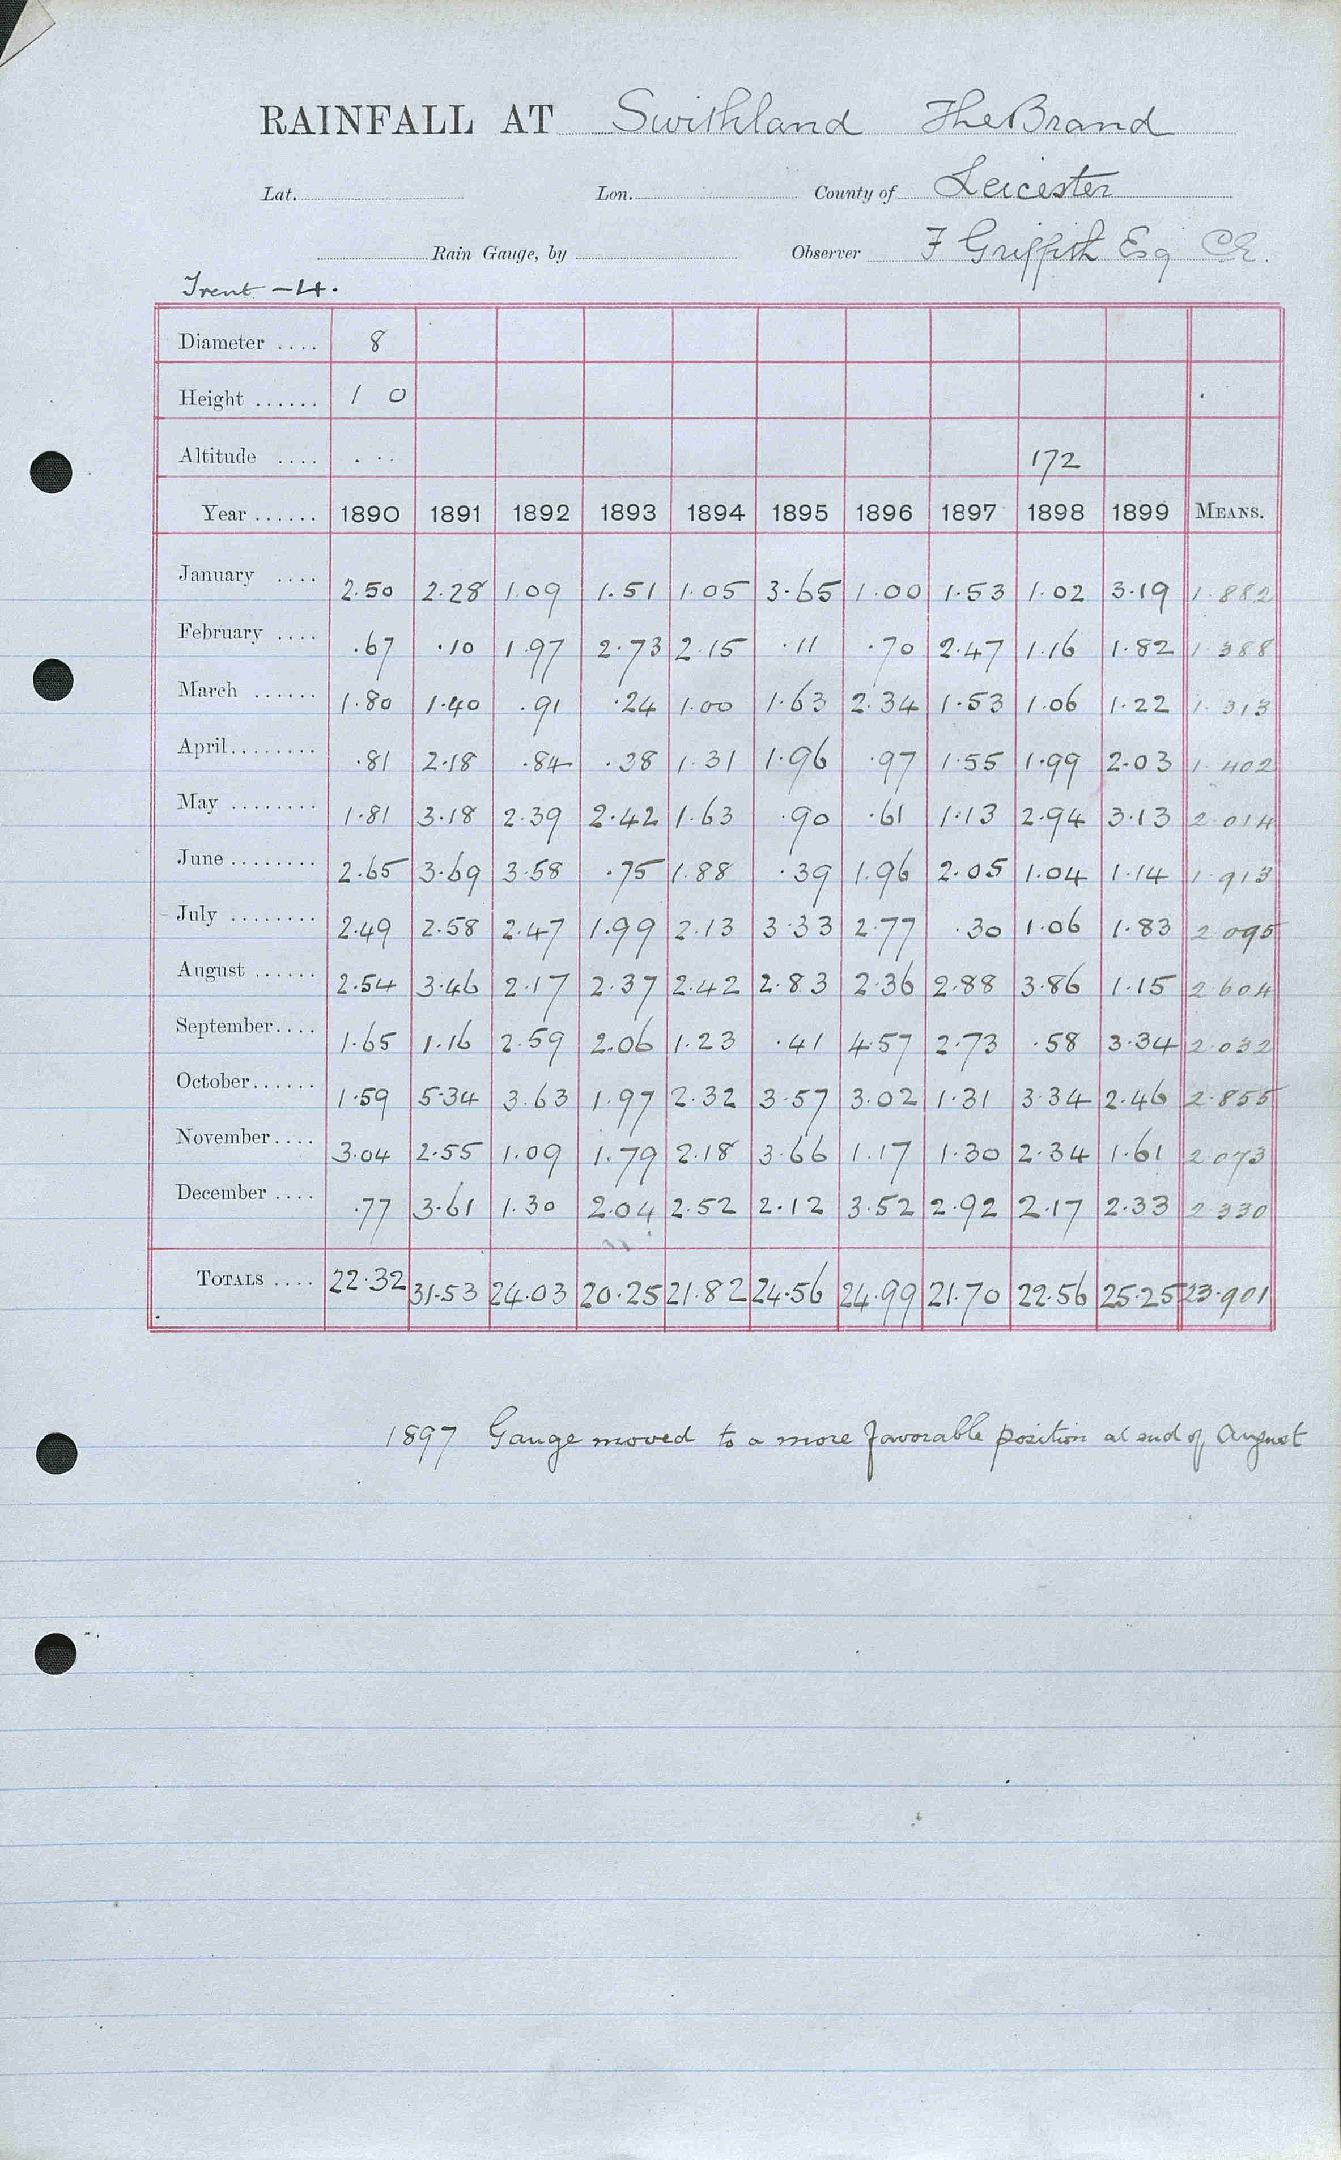 RAINFALL AT Swithland The Brand
Lat. Lon. County of Leicester
Rain Gauge, by Observer F Griffith Esq CE.
Trent -4.
Diameter .... 8
Height ...... 1 0
Altitude .... . . . 172
Year ...... 1890 1891 1892 1893 1894 1895 1896 1897 1898 1899 MEANS.
January .... 2.50 2.28 1.09 1.51 1.05 3.65 1.00 1.53 1.02 3.19 1.882
February .... .67 .10 1.97 2.73 2.15 .11 .70 2.47 1.16 1.82 1.388
March ...... 1.80 1.40 .91 .24 1.00 1.63 2.34 1.53 1.06 1.22 1.313
April........ .81 2.18 .84 .38 1.31 1.96 .97 1.55 1.99 2.03 1.402
May ........ 1.81 3.18 2.39 2.42 1.63 .90 .61 1.13 2.94 3.13 2.014
June ........ 2.65 3.69 3.58 .75 1.88 .39 1.96 2.05 1.04 1.14 1.913
July ........ 2.49 2.58 2.47 1.99 2.13 3.33 2.77 .30 1.06 1.83 2.095
August ...... 2.54 3.46 2.17 2.37 2.42 2.83 2.36 2.88 3.86 1.15 2.604
September.... 1.65 1.16 2.59 2.06 1.23 .41 4.57 2.73 .58 3.34 2.032
October...... 1.59 5.34 3.63 1.97 2.32 3.57 3.02 1.31 3.34 2.46 2.855
November.... 3.04 2.55 1.09 1.79 2.18 3.66 1.17 1.30 2.34 1.61 2.073
December .... .77 3.61 1.30 2.04 2.52 2.12 3.52 2.92 2.17 2.33 2.330
TOTALS .... 22.32 31.53 24.03 20.25 21.82 24.56 24.99 21.70 22.56 25.25 23.901
1897 Gauge moved to a more favorable position at end of August